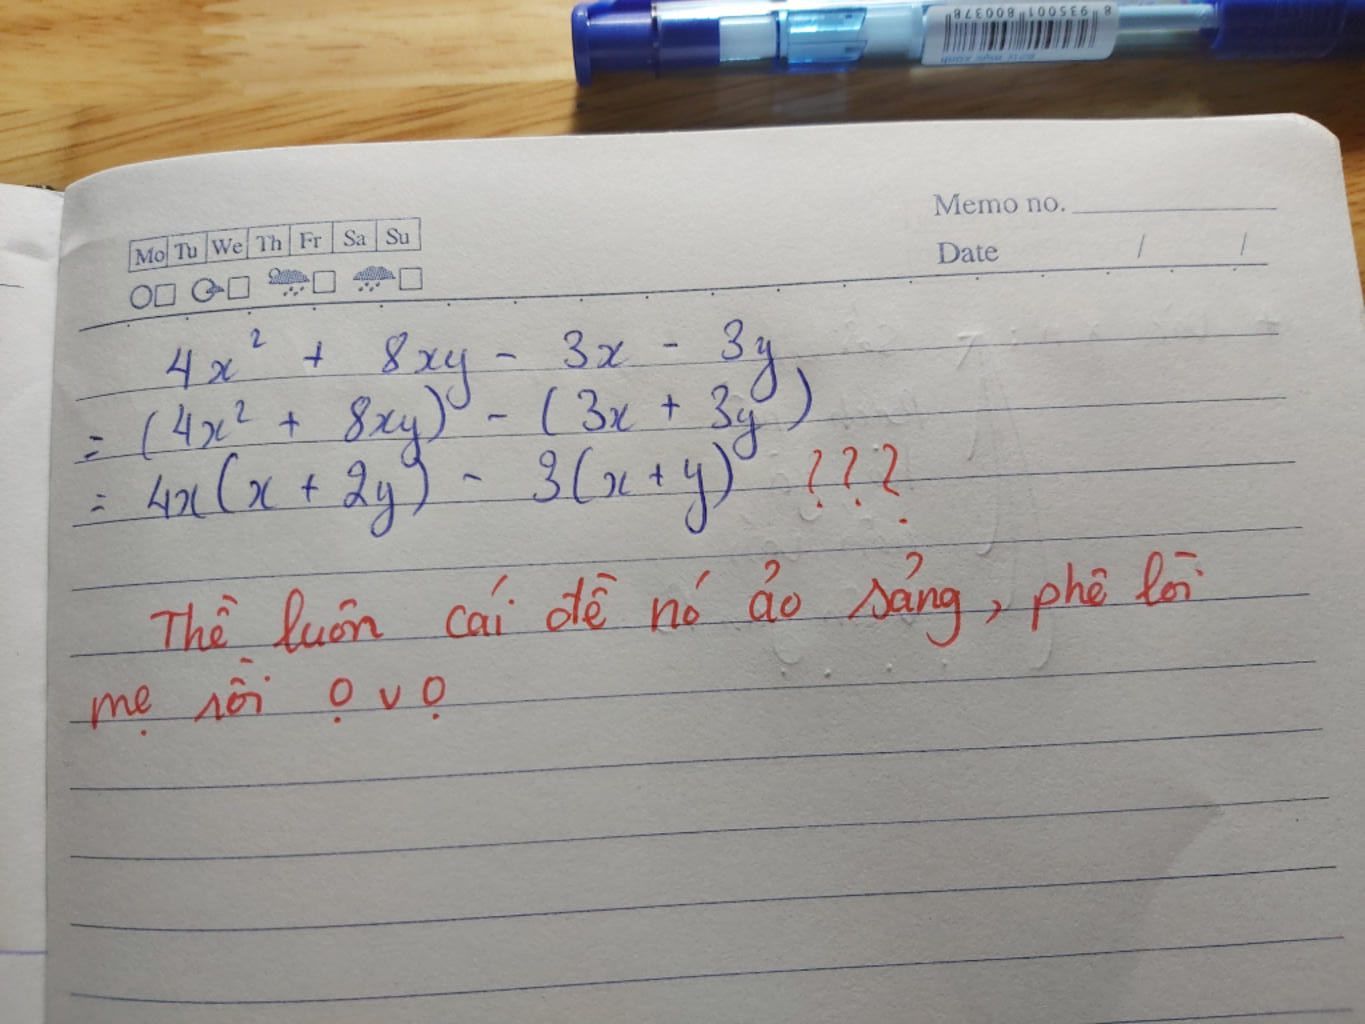 8 935001 800378
Memo no.
Mo Tu We Th Fr Sa Su
Date / /
4x² + 8xy - 3x - 3y
= (4x² + 8xy) - (3x + 3y)
= 4x(x + 2y) - 3(x + y) ???
Thề luôn cái đề nó ảo sảng, phê lòi
mẹ rồi ọ v ọ